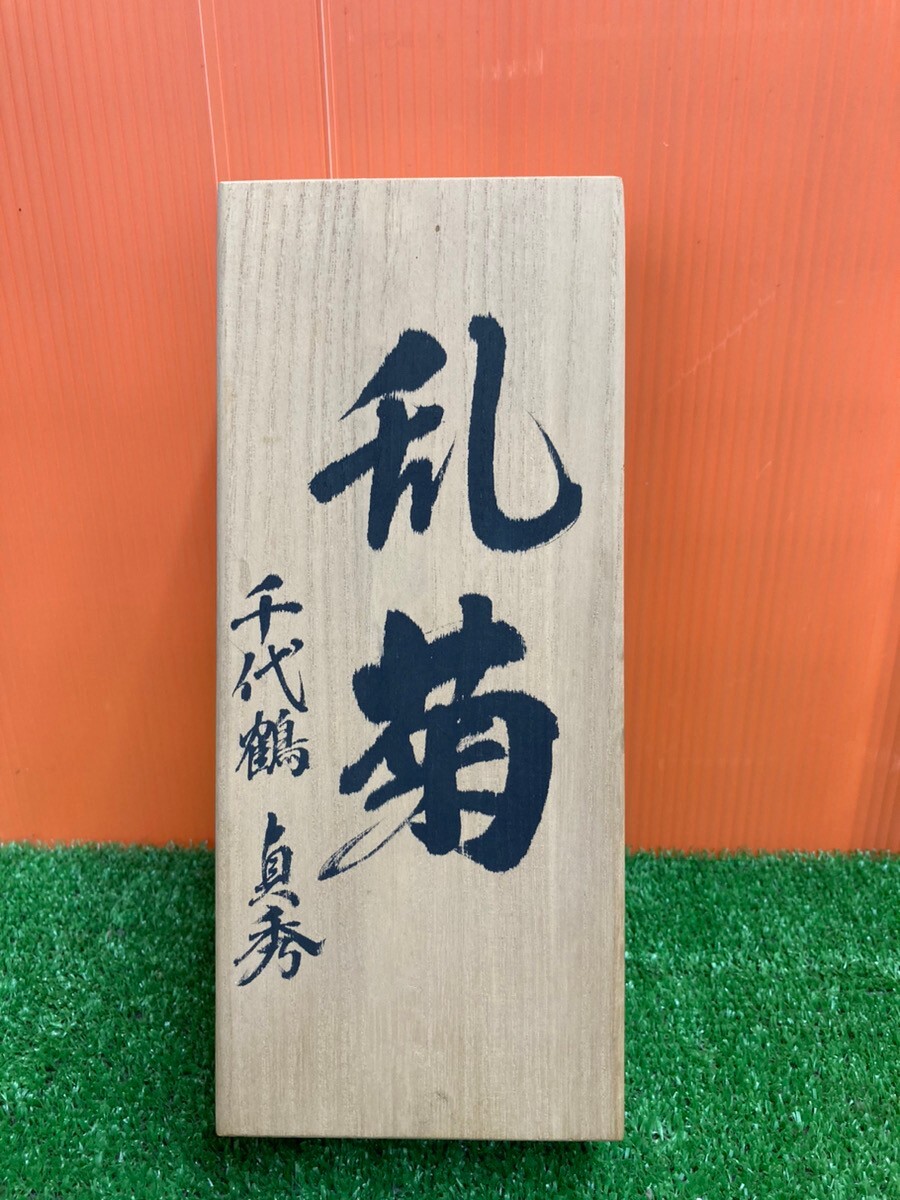 乱菊
千代鶴 貞秀